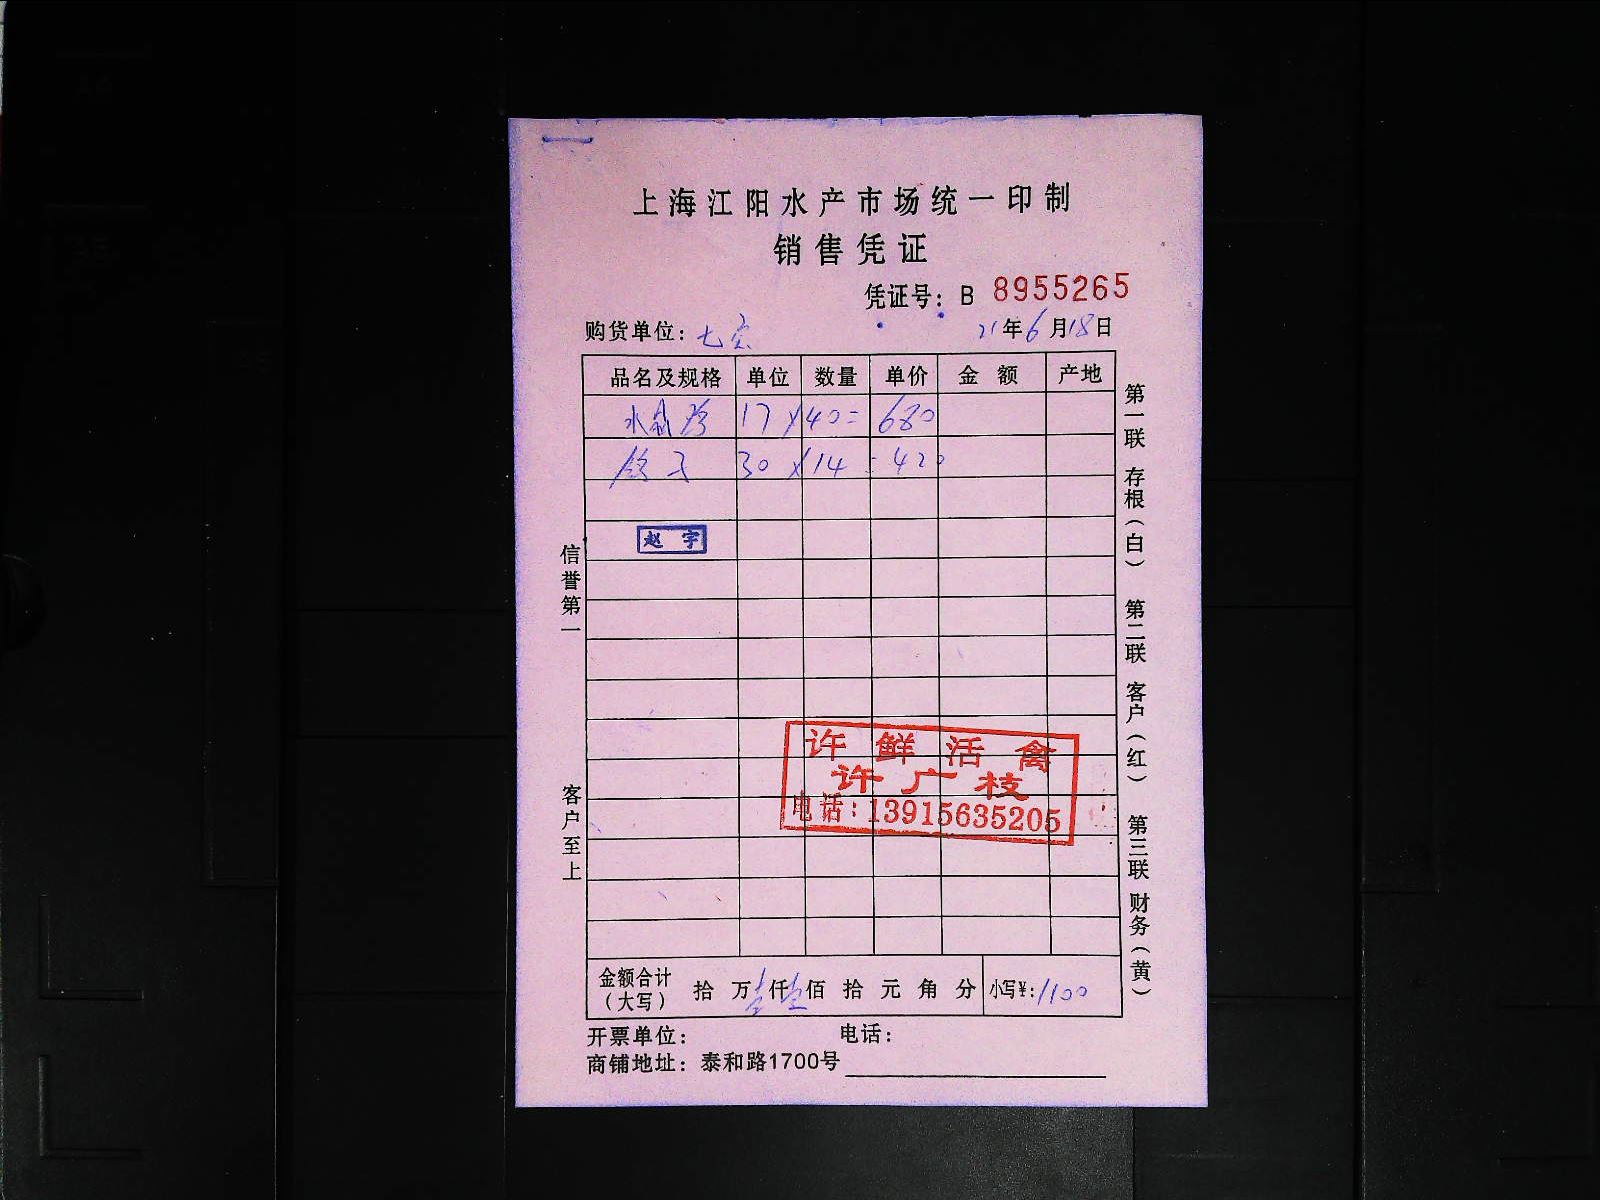 上海江阳水产市场统一印制
销售凭证
凭证号：B 8955265
购货单位：七宝 21年6月18日
品名及规格 单位 数量 单价 金额 产地
水 17×40=680
鸽子 30×14=420
赵宇
信誉第一
客户至上
许鲜活禽
许广枝
电话：13915635205
第一联 存根（白） 第二联 客户（红） 第三联 财务（黄）
金额合计（大写） 拾 万 壹仟 壹佰 拾 元 角 分 小写¥:1100
开票单位： 电话：
商铺地址：泰和路1700号